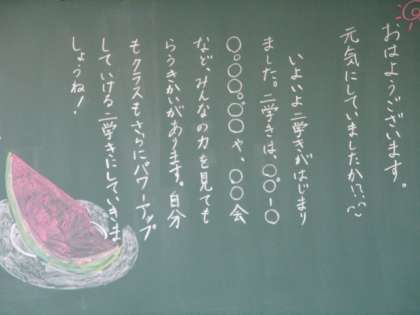 おはようございます。
元気にしていましたか!?
いよいよ二学きがはじまり
ました。二学きは、○○-○
○。○○。○○や、○○会
など、みんなの力を見ても
らうきかいがあります。自分
もクラスもさらにパワーアップ
していける二学きにしていきま
しょうね!